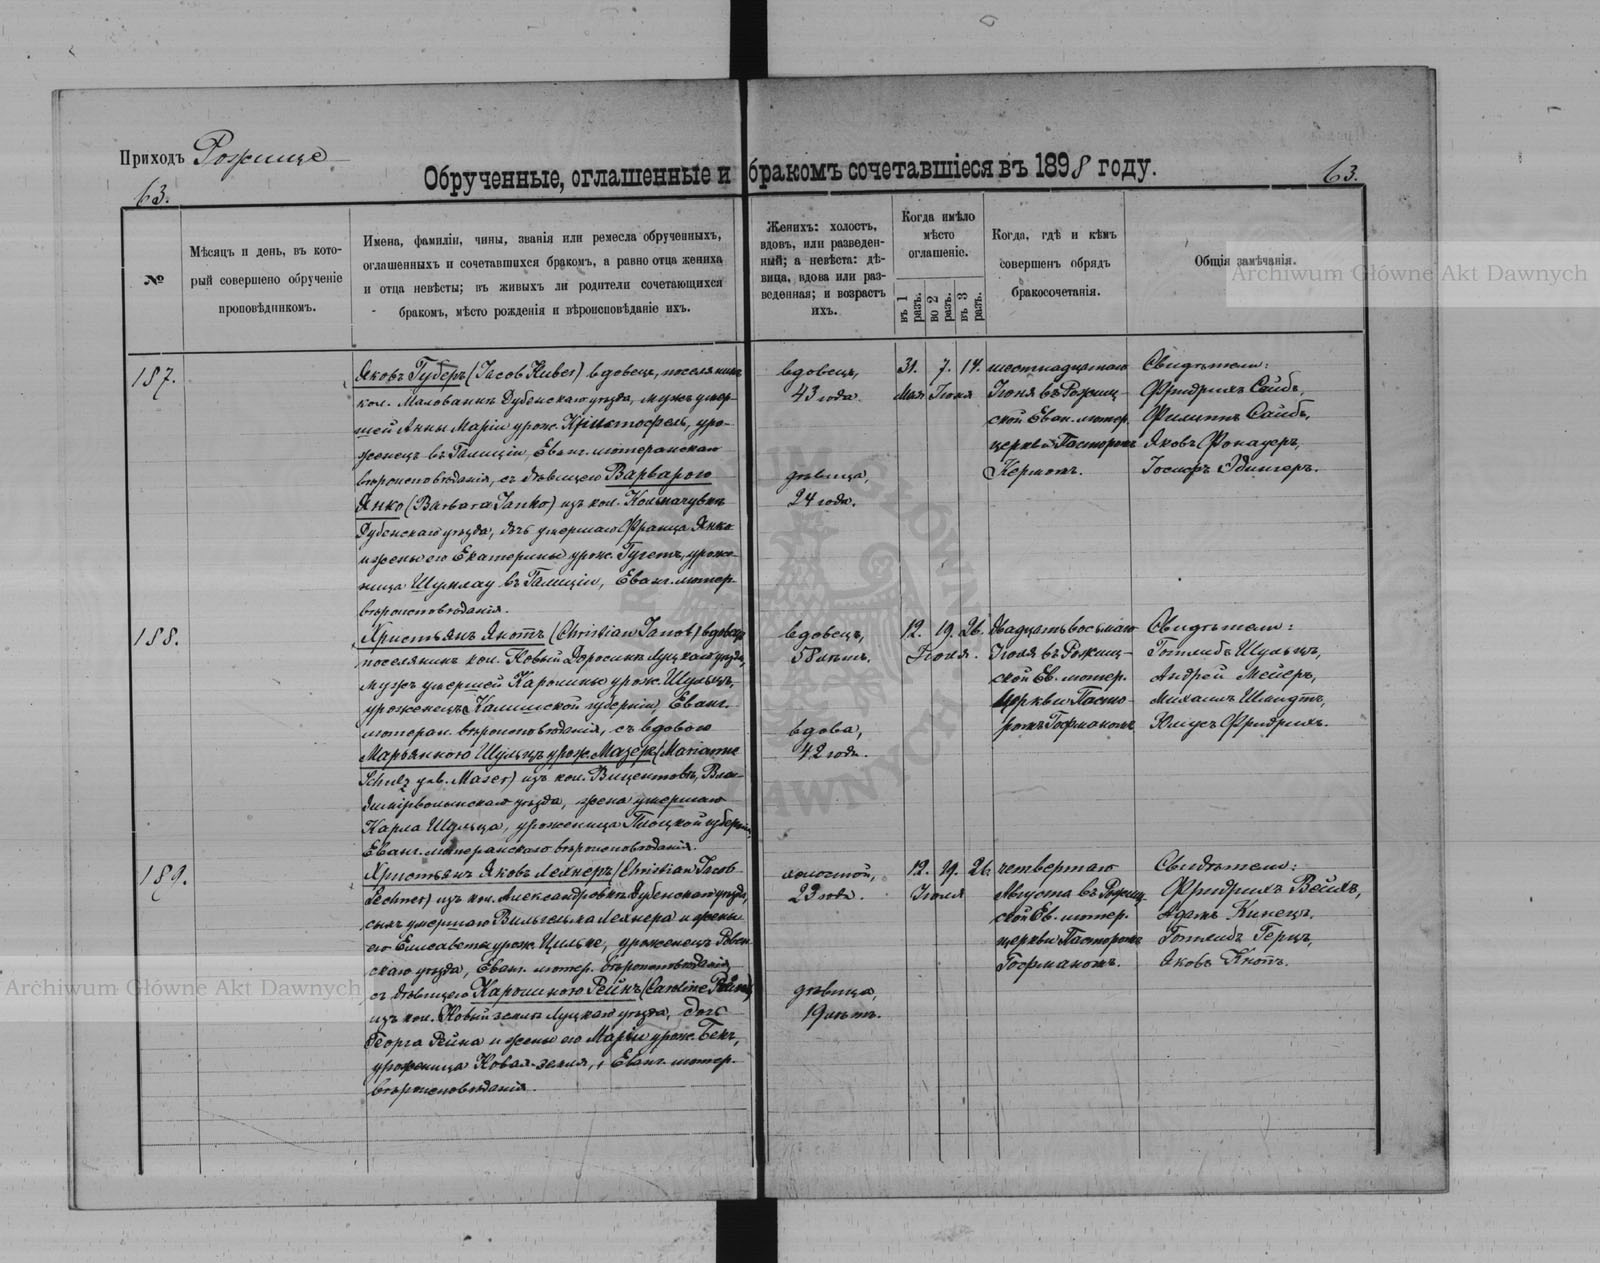 Приходъ Рожище
63.
Обрученные, оглашенные и бракомъ сочетавшіеся въ 1898 году.
63.
№
Мѣсяцъ и день, въ кото-
рый совершено обрученіе
проповѣдникомъ.
Имена, фамиліи, чины, званія или ремесла обрученныхъ,
оглашенныхъ и сочетавшихся бракомъ, а равно отца жениха
и отца невѣсты; въ живыхъ ли родители сочетающихся
бракомъ, мѣсто рожденія и вѣроисповѣданіе ихъ.
Женихъ: холостъ,
вдовъ, или разведен-
ный; а невѣста: дѣ-
вица, вдова или раз-
веденная; и возрастъ
ихъ.
Когда имѣло
мѣсто
оглашеніе.
въ 1 разъ.
во 2 разъ.
въ 3 разъ.
Когда, гдѣ и кѣмъ
совершенъ обрядъ
бракосочетанія.
Общія замѣчанія.
Archiwum Główne Akt Dawnych
187.
Яковъ Губеръ (Jacob Huber) вдовецъ, поселянинъ
кол. Малованка Дубенскаго уѣзда, мужъ умер-
шей Анны Маріи урож. Кристофель, уро-
женецъ въ Галиціи, Еванг. лютеранскаго
вѣроисповѣданія, съ дѣвицею Варварою
Янко (Barbara Janko) изъ кол.
Дубенскаго уѣзда, дочь умершаго Франца Янко
и жены его Екатерины урож. уроже-
ница въ Галиціи, Еванг. лютер.
вѣроисповѣданія.
вдовецъ,
43 года.
дѣвица,
24 года.
31. 7. 14.
Мая Іюня
шестнадцатаго
Іюня въ Рожищ-
ской Еван. лютер.
церкви Пасторомъ
Кермомъ.
Свидѣтели:
Фридрихъ Сайбъ,
Филиппъ Сайбъ,
Яковъ Фонауеръ,
Іосифъ Эдингеръ.
188.
Христьянъ Янотъ (Christian Janot) вдовецъ
поселянинъ кол. Новый Доросинъ Луцкаго уѣзда,
мужъ умершей Каролины урож. Шульцъ,
уроженецъ Калишской губерніи, Еванг.
лютеран. вѣроисповѣданія, съ вдовою
Марьянною Шульцъ урож. Мазеръ (Marianne
Schulz geb. Maser) изъ кол. Вицентовка, Вла-
димірволынскаго уѣзда, жена умершаго
Карла Шульца, уроженица Плоцкой губерніи,
Еванг. лютеранскаго вѣроисповѣданія.
вдовецъ,
58 лѣтъ.
вдова,
42 года.
12. 19. 26.
Іюля.
двадцать восьмаго
Іюля въ Рожищ-
ской Ев. лютер.
церкви Пасто-
ромъ Гофманомъ
Свидѣтели:
Готлибъ Шульцъ,
Андрей Мейеръ,
Михаилъ Шмидтъ,
Юлиусъ Фридрихъ.
189.
Христьянъ Яковъ Лехнеръ (Christian Jacob
Lechner) изъ кол. Александровка Дубенскаго уѣзда,
сынъ умершаго Вильгельма Лехнера и жены
его Елисаветы урож. Цильке, уроженецъ Ровен-
скаго уѣзда, Еванг. лютер. вѣроисповѣданія,
съ дѣвицею Каролиною Рейнъ (Caroline Rein)
изъ кол. Луцкаго уѣзда, дочь
Георга Рейна и жены его Маріи урож. Бекъ,
уроженица Новая-земля, Еванг. лютер.
вѣроисповѣданія.
холостой,
23 года.
дѣвица,
19 лѣтъ.
12. 19. 26.
Іюля
четвертаго
Августа въ Рожищ-
ской Ев. лютер.
церкви Пасторомъ
Гофманомъ.
Свидѣтели:
Фридрихъ Вейлъ,
Адамъ Кинецъ,
Готлибъ Герцъ,
Яковъ Кнотъ.
Archiwum Główne Akt Dawnych